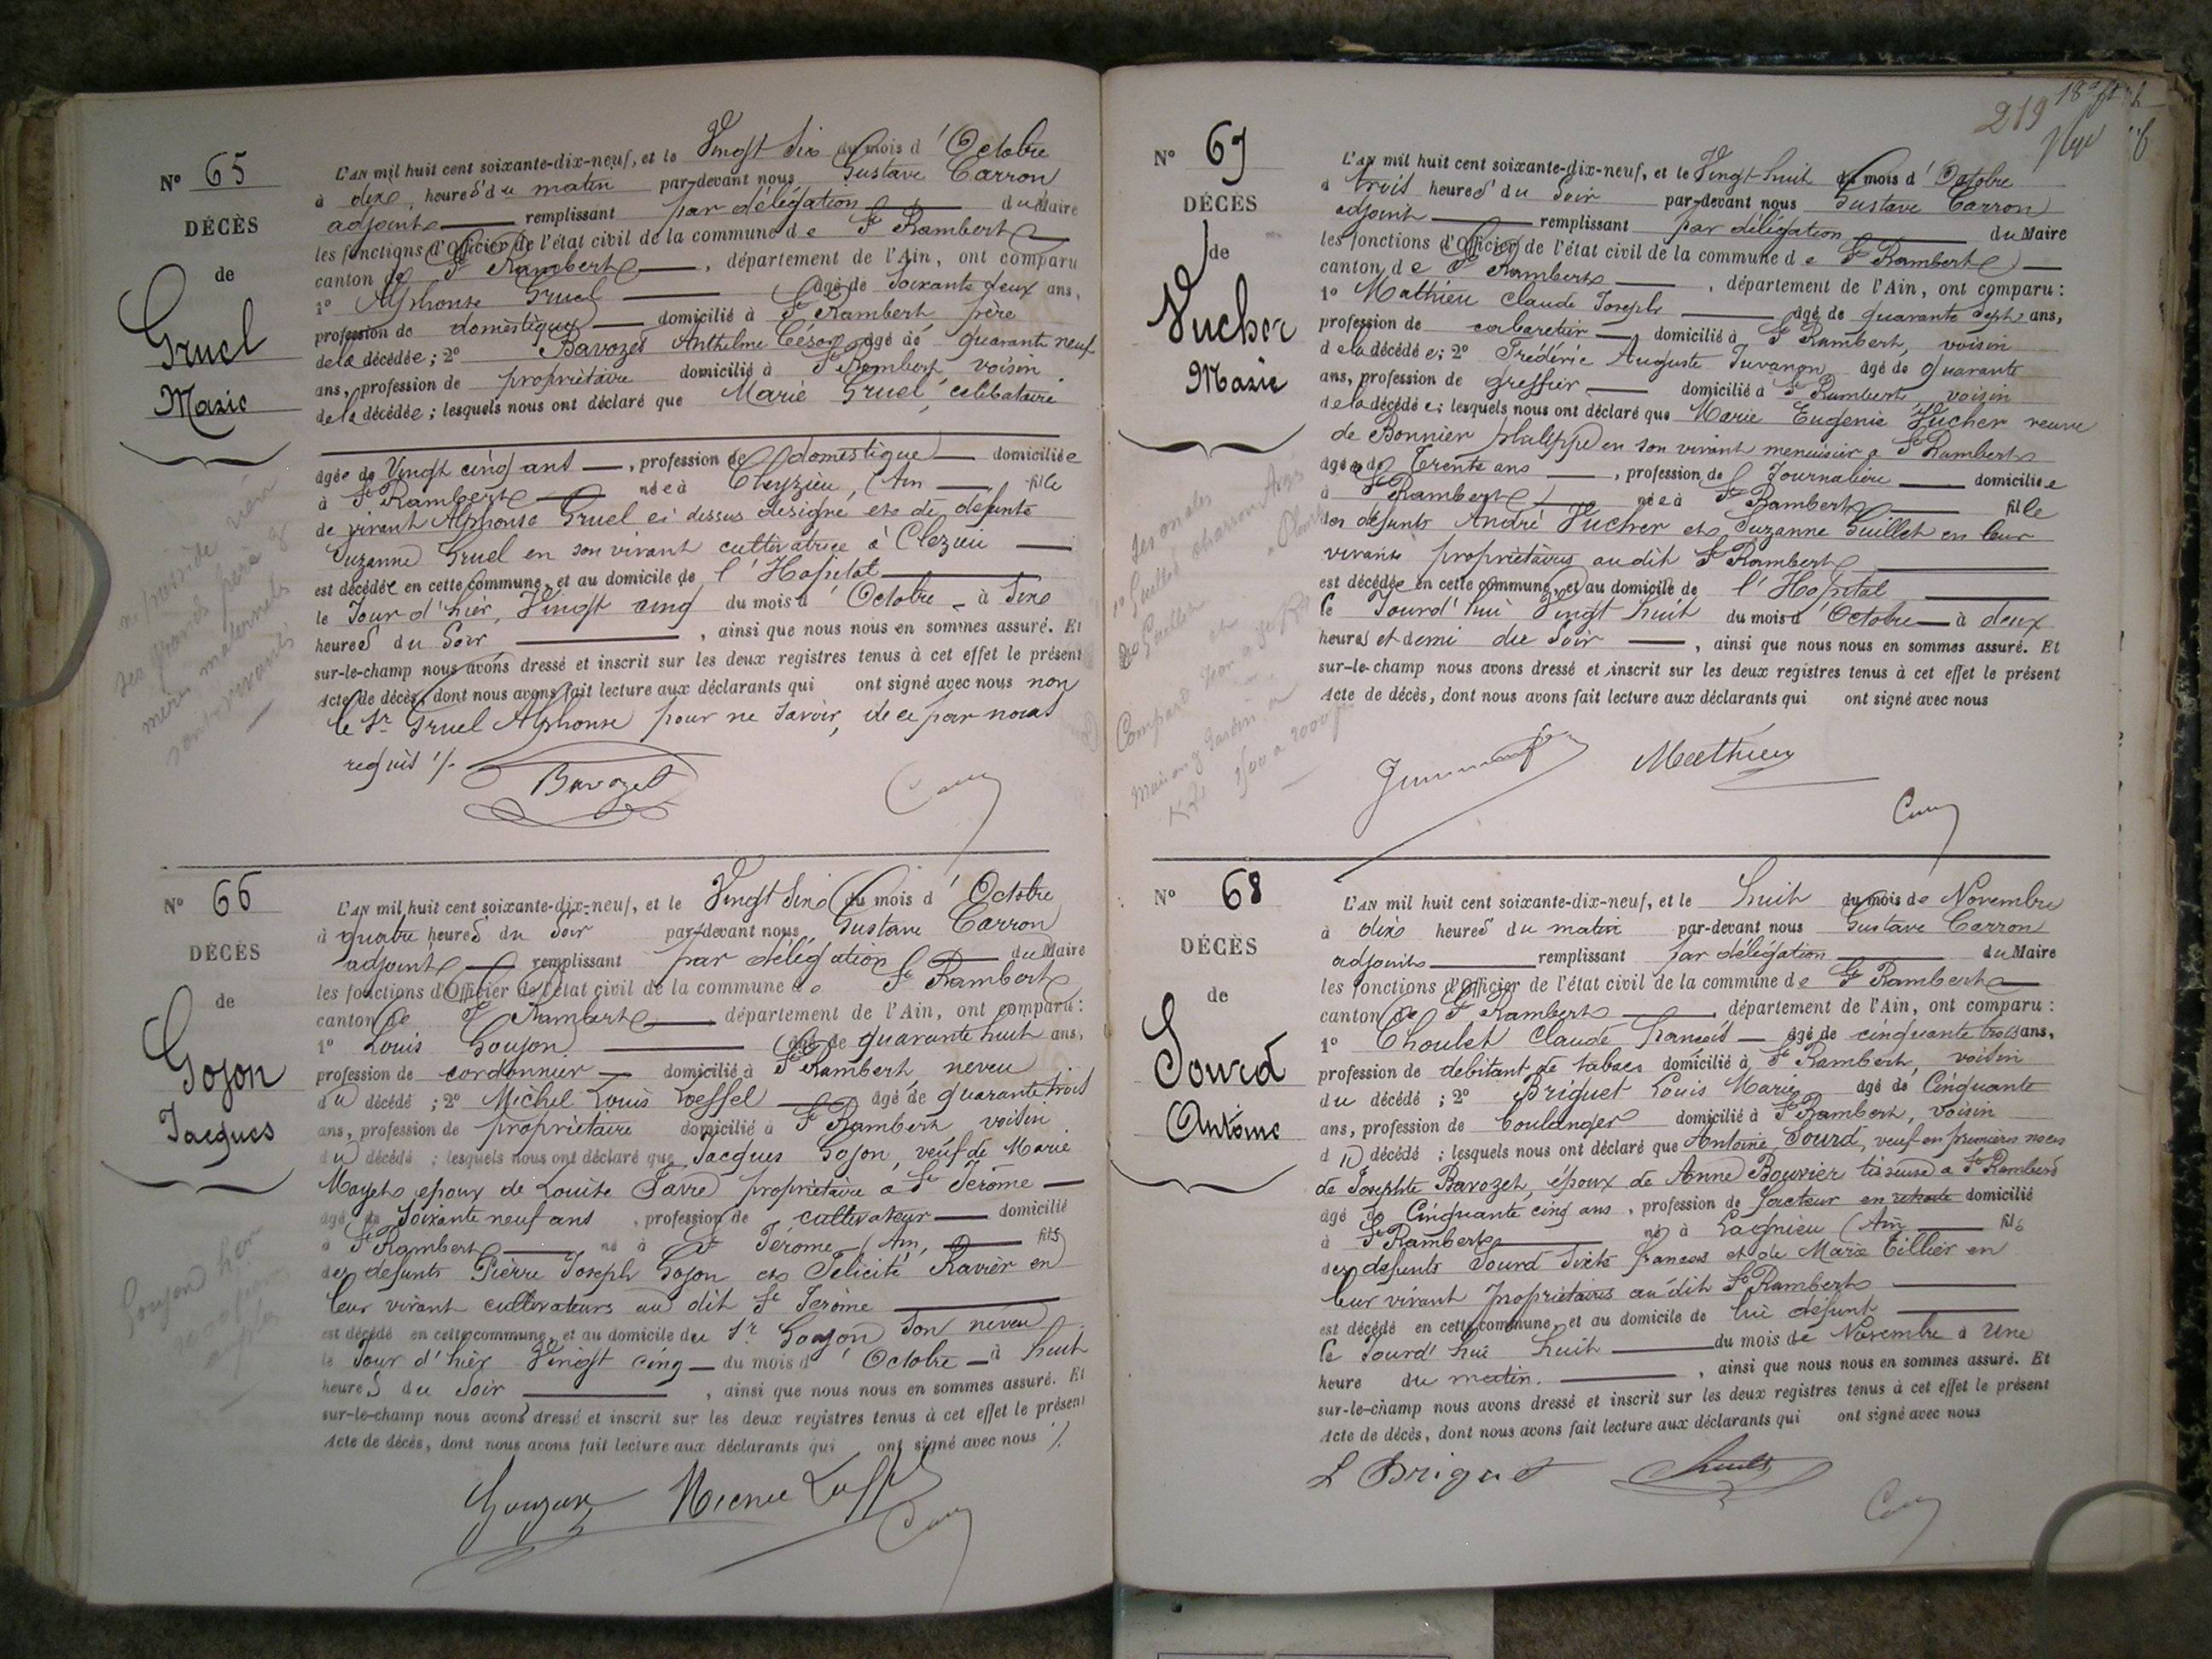 N° 65
DÉCÈS
de
Gruel
Marie
L'AN mil huit cent soixante-dix-neuf, et le Vingt Six du mois d' Octobre
à dix heures du matin par-devant nous Gustave Carron
adjoint remplissant par délégation du Maire
les fonctions d'Officier de l'état civil de la commune de St Rambert
canton de St Rambert, département de l'Ain, ont comparu
1° Alphonse Gruel âgé de Soixante deux ans,
profession de domestique domicilié à St Rambert père
de la décédée; 2° Bavozet Anthelme César âgé de quarante neuf
ans, profession de propriétaire domicilié à St Rambert voisin
de la décédée; lesquels nous ont déclaré que Marie Gruel, célibataire
âgée de Vingt cinq ans, profession de domestique domiciliée
à St Rambert née à Cleyzieu (Ain fille
de vivant Alphonse Gruel ci dessus désigné et de défunte
Suzanne Gruel en son vivant cultivatrice à Clezieu
est décédée en cette commune, et au domicile de l'Hopital
le Jour d'hier, Vingt cinq du mois d' Octobre à Six
heures du Soir, ainsi que nous nous en sommes assuré. Et
sur-le-champ nous avons dressé et inscrit sur les deux registres tenus à cet effet le présent
Acte de décès, dont nous avons fait lecture aux déclarants qui ont signé avec nous non
le Sr Gruel Alphonse pour ne savoir, de ce par nous
requis ./.
Bavozet
ne possède rien
ses grands père &
mère maternels
sont vivants
N° 66
DÉCÈS
de
Gojon
Jacques
L'AN mil huit cent soixante-dix-neuf, et le Vingt Six du mois d' Octobre
à quatre heures du Soir par-devant nous Gustave Carron
adjoint remplissant par délégation du Maire
les fonctions d'Officier de l'état civil de la commune de St Rambert
canton de St Rambert département de l'Ain, ont comparu:
1° Louis Goujon âgé de quarante huit ans,
profession de cordonnier domicilié à St Rambert neveu
du décédé; 2° Michel Louis Loeffel âgé de quarante trois
ans, profession de propriétaire domicilié à St Rambert voisin
du décédé; lesquels nous ont déclaré que Jacques Gojon, veuf de Marie
Mayet époux de Louise Favre propriétaire à St Jérôme
âgé de Soixante neuf ans, profession de cultivateur domicilié
à St Rambert né à St Jérome (Ain, fils
des défunts Pierre Joseph Gojon et Félicité Ravier en
leur vivant cultivateurs au dit St Jérôme
est décédé en cette commune, et au domicile du Sr Goujon Son neveu
le Jour d'hier Vingt cinq du mois d' Octobre à huit
heures du Soir, ainsi que nous nous en sommes assuré. Et
sur-le-champ nous avons dressé et inscrit sur les deux registres tenus à cet effet le présent
Acte de décès, dont nous avons fait lecture aux déclarants qui ont signé avec nous ./.
Goujon
219
N° 69
DÉCÈS
de
Vucher
Marie
L'AN mil huit cent soixante-dix-neuf, et le Vingt-huit du mois d' Octobre
à trois heures du Soir par-devant nous Gustave Carron
adjoint remplissant par délégation du Maire
les fonctions d'Officier de l'état civil de la commune de St Rambert
canton de St Rambert, département de l'Ain, ont comparu:
1° Mathieu Claude Joseph âgé de quarante sept ans,
profession de cabaretier domicilié à St Rambert, voisin
de la décédée; 2° Frédéric Auguste Juvanon âgé de quarante
ans, profession de greffier domicilié à St Rambert voisin
de la décédée; lesquels nous ont déclaré que Marie Eugenie Vucher veuve
de Bonnier phalippe en son vivant menuisier à St Rambert
âgée de Trente ans, profession de Journalière domiciliée
à St Rambert née à St Rambert fille
des défunts André Vucher et Suzanne Guillet en leur
vivants propriétaires au dit St Rambert
est décédée en cette commune, et au domicile de l'Hopital
le Jourd'hui Vingt huit du mois d' Octobre à deux
heures et demi du Soir, ainsi que nous nous en sommes assuré. Et
sur-le-champ nous avons dressé et inscrit sur les deux registres tenus à cet effet le présent
Acte de décès, dont nous avons fait lecture aux déclarants qui ont signé avec nous
Mathieu
N° 68
DÉCÈS
de
Sourd
Antoine
L'AN mil huit cent soixante-dix-neuf, et le huit du mois de Novembre
à dix heures du matin par-devant nous Gustave Carron
adjoint remplissant par délégation du Maire
les fonctions d'Officier de l'état civil de la commune de St Rambert
canton de St Rambert, département de l'Ain, ont comparu:
1° Choulet Claude françois âgé de cinquante trois ans,
profession de débitant de tabacs domicilié à St Rambert, voisin
du décédé; 2° Briguet Louis Marie âgé de Cinquante
ans, profession de boulanger domicilié à St Rambert, voisin
du décédé; lesquels nous ont déclaré que Antoine Sourd, veuf en premières noces
de Josephte Bavozet, époux de Anne Bouvier tisseuse a St Rambert
âgé de Cinquante cinq ans, profession de facteur en retraite domicilié
à St Rambert né à Lagnieu (Ain fils
des défunts Sourd Sixte françois et de Marie Tillier en
leur vivant propriétaires au dit St Rambert
est décédé en cette commune, et au domicile de lui défunt
le Jourd'hui huit du mois de Novembre à Une
heure du matin, ainsi que nous nous en sommes assuré. Et
sur-le-champ nous avons dressé et inscrit sur les deux registres tenus à cet effet le présent
Acte de décès, dont nous avons fait lecture aux déclarants qui ont signé avec nous
L Briguet